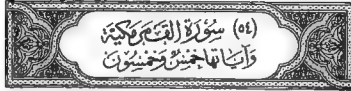 (٥٤) سُوْرَةُ القَمَرِ مَكِيَّة
وَآيَاتُهَا خَمْسٌ وَخَمْسُوْنَ